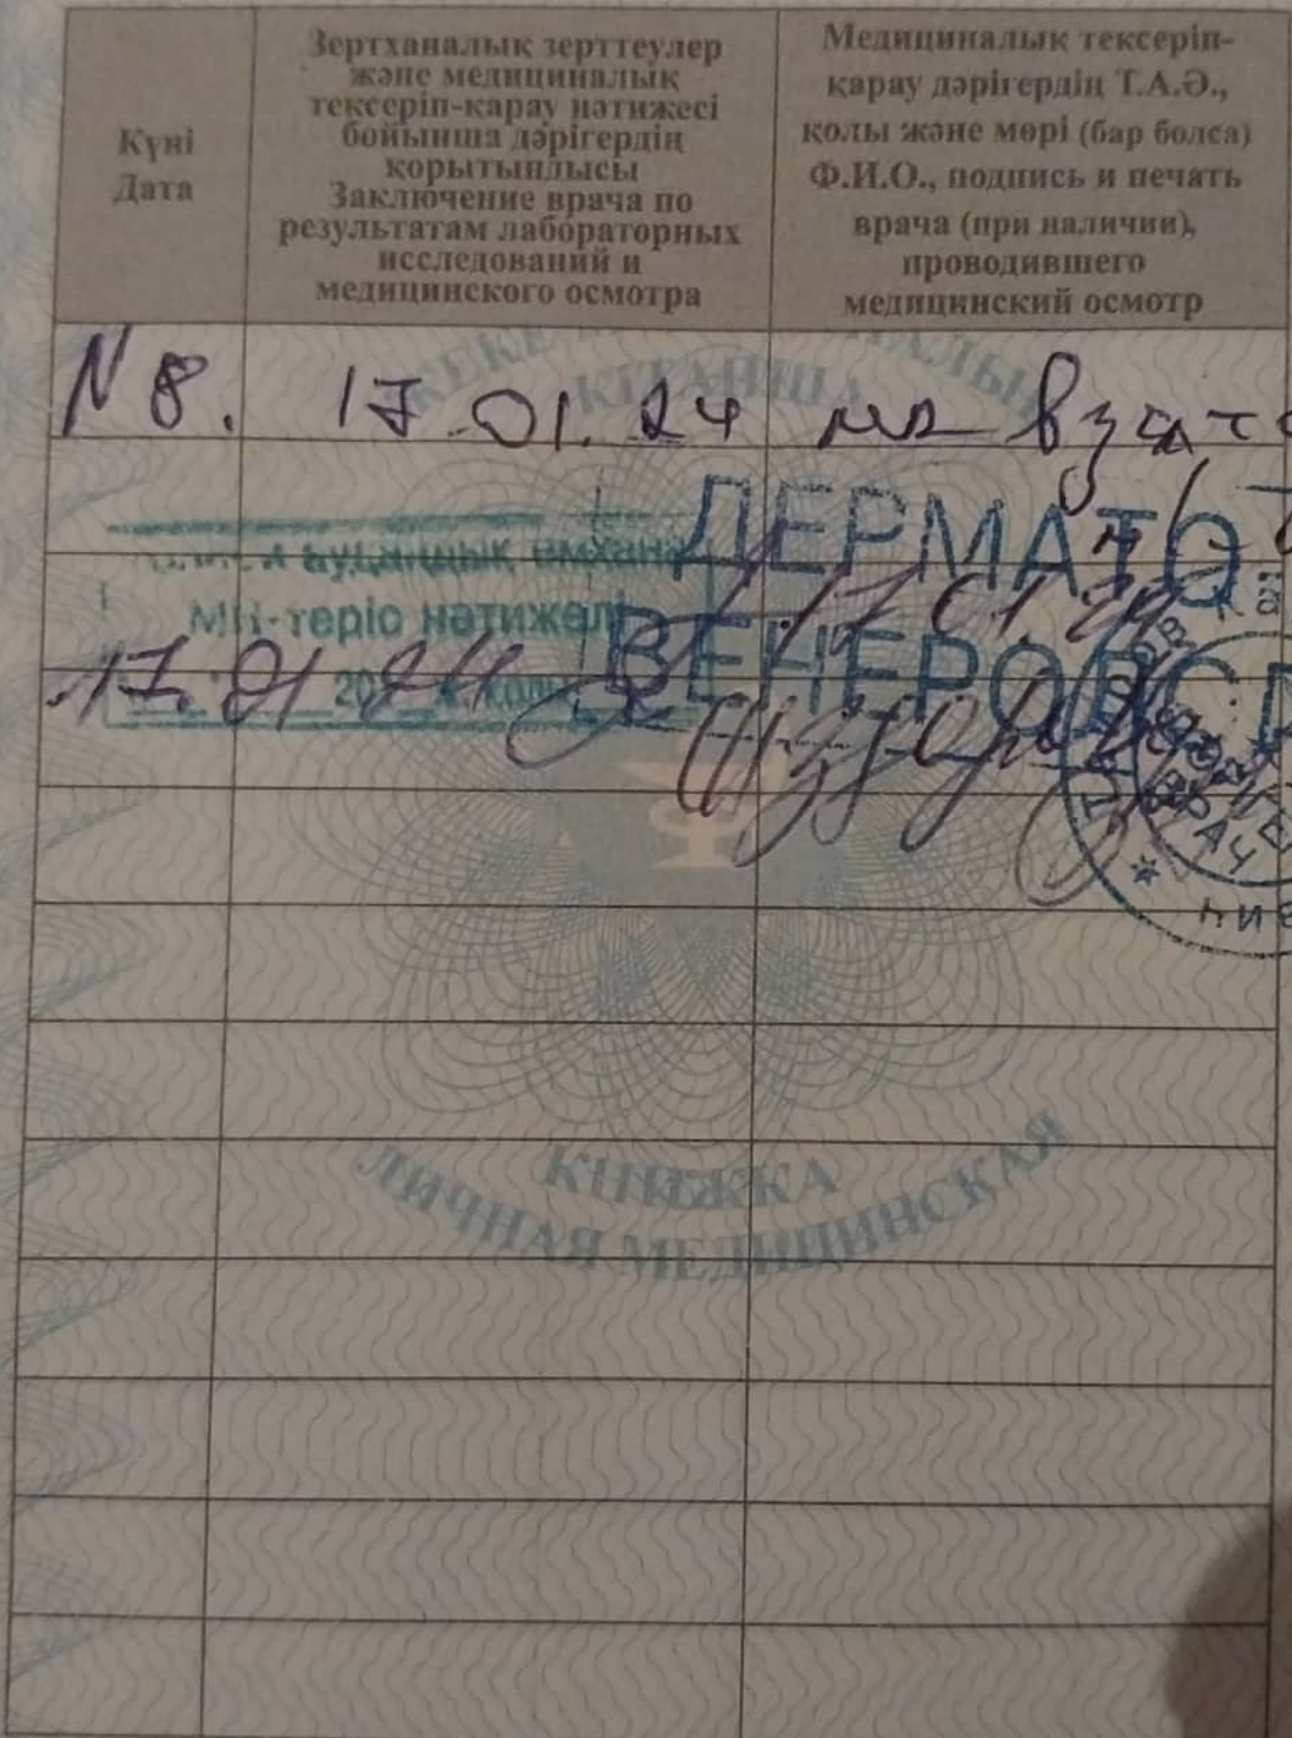 Күні
Дата
Зертханалық зерттеулер
және медициналық
тексеріп-қарау нәтижесі
бойынша дәрігердің
қорытындысы
Заключение врача по
результатам лабораторных
исследований и
медицинского осмотра
Медициналық тексеріп-
қарау дәрігердің Т.А.Ә.,
қолы және мөрі (бар болса)
Ф.И.О., подпись и печать
врача (при наличии),
проводившего
медицинский осмотр
N 8. 17.01.24 мр взято
ДЕРМАТО
аудандық емхана
МР-теріс нәтижелі
17.01.24
ВЕНЕРО
17.01.24
здоров
ВРАЧ
ВИЧ
КНИЖКА
ЛИЧНАЯ МЕДИЦИНСКАЯ